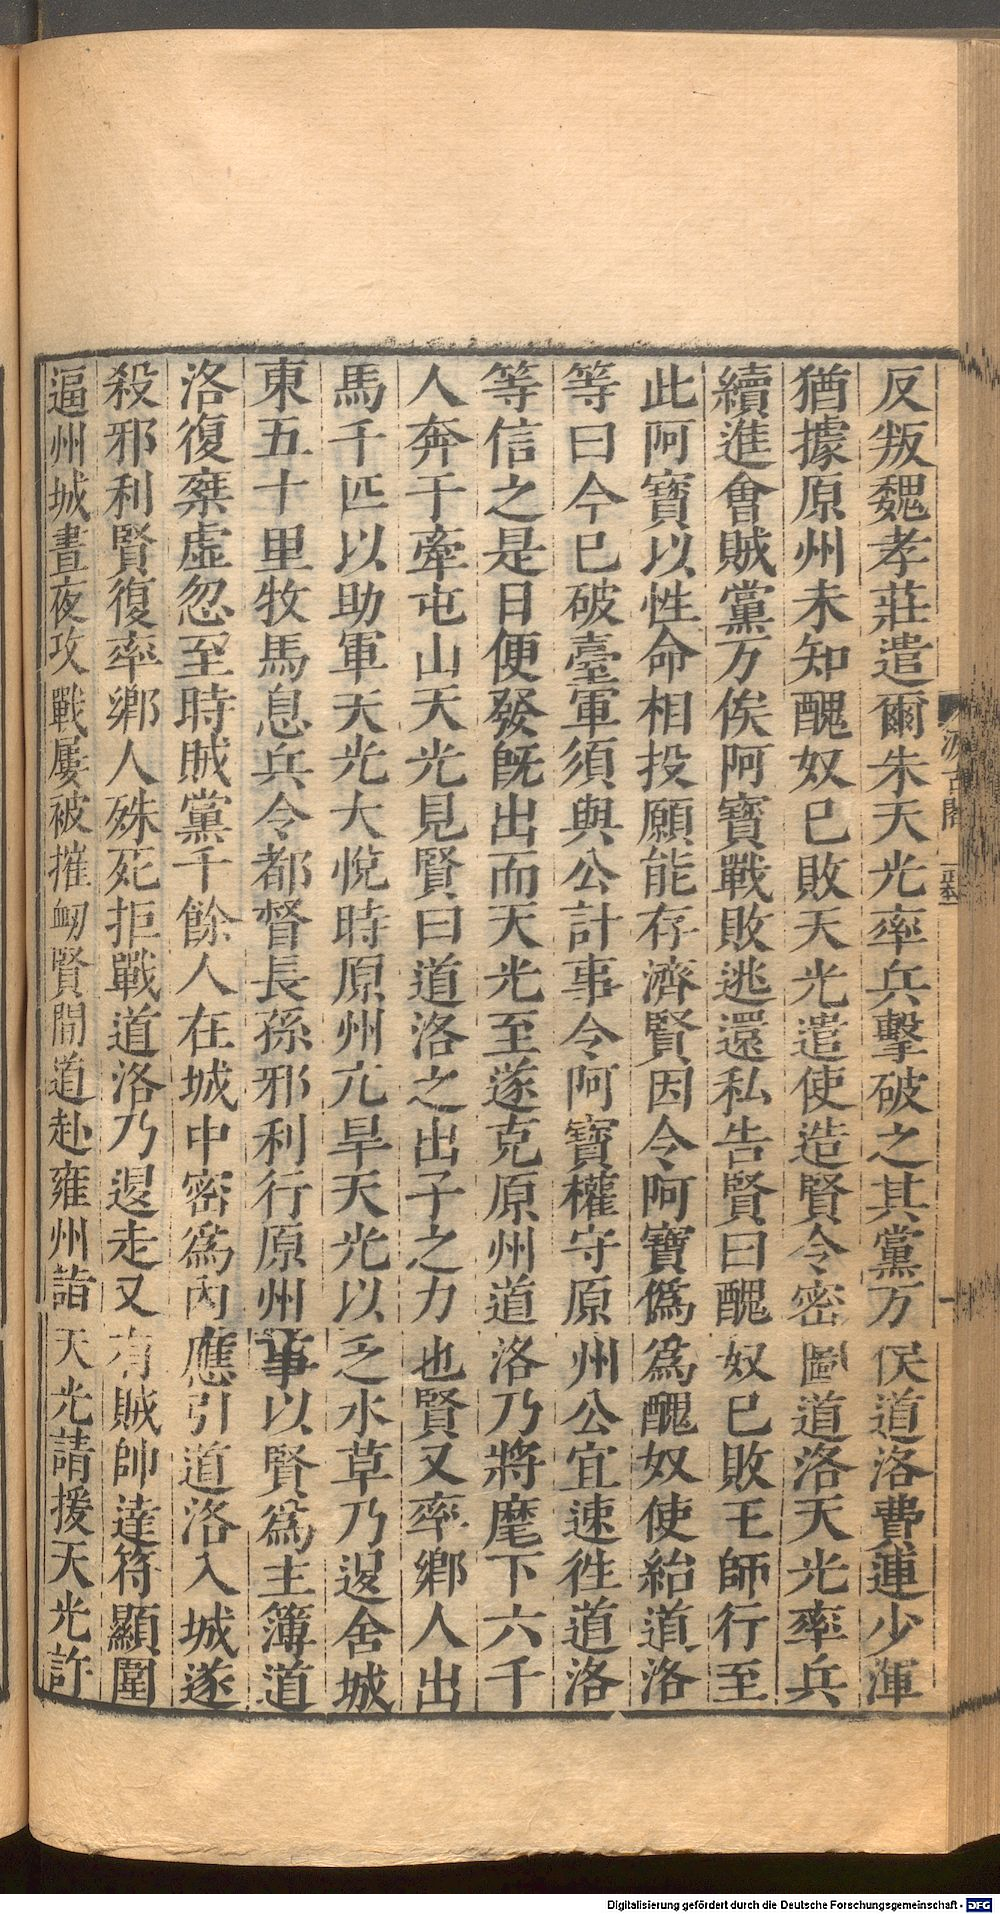 反叛魏孝莊遣爾朱天光率兵擊破之其黨万俟道洛費連少渾
猶據原州未知醜奴已敗天光遣使造賢令密圖道洛天光率兵
續進會賊黨万俟阿寶戰敗逃還私告賢曰醜奴已敗王師行至
此阿寶以性命相投願能存濟賢因令阿寶僞爲醜奴使紿道洛
等曰今已破臺軍須與公計事令阿寶權守原州公宜速徃道洛
等信之是日便發旣出而天光至遂克原州道洛乃將麾下六千
人奔于牽屯山天光見賢曰道洛之出子之力也賢又率鄉人出
馬千匹以助軍天光大悅時原州亢旱天光以乏水草乃退舍城
東五十里牧馬息兵令都督長孫邪利行原州事以賢爲主簿道
洛復乗虛忽至時賊黨千餘人在城中密爲內應引道洛入城遂
殺邪利賢復率鄉人殊死拒戰道洛乃退走又有賊帥達符顯圍
逼州城晝夜攻戰屢被摧衂賢間道赴雍州詣天光請援天光許
汲古閣
正本
Digitalisierung gefördert durch die Deutsche Forschungsgemeinschaft - DFG